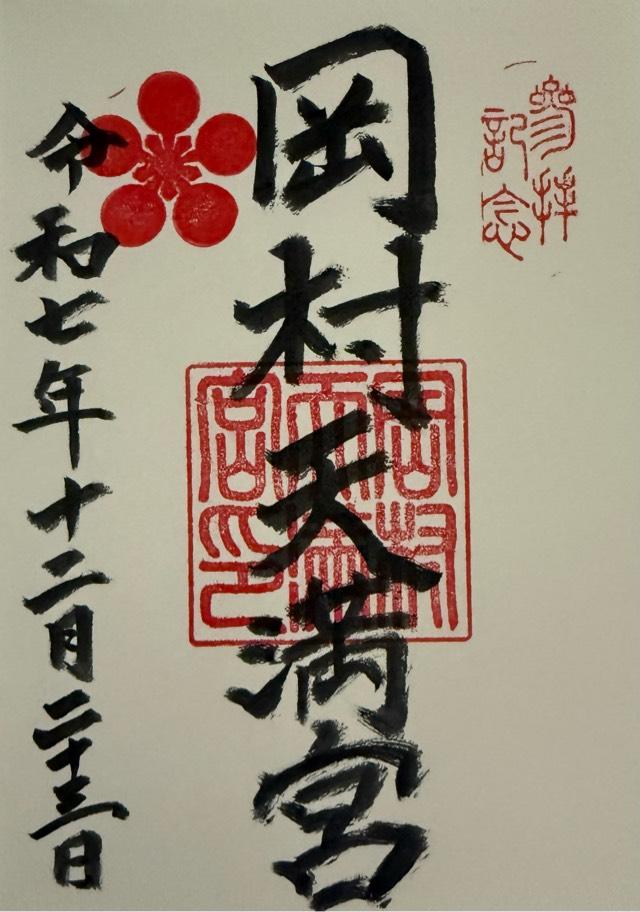 參拝
記念
岡村天満宮
岡村
天満
宮印
令和七年十二月二十三日